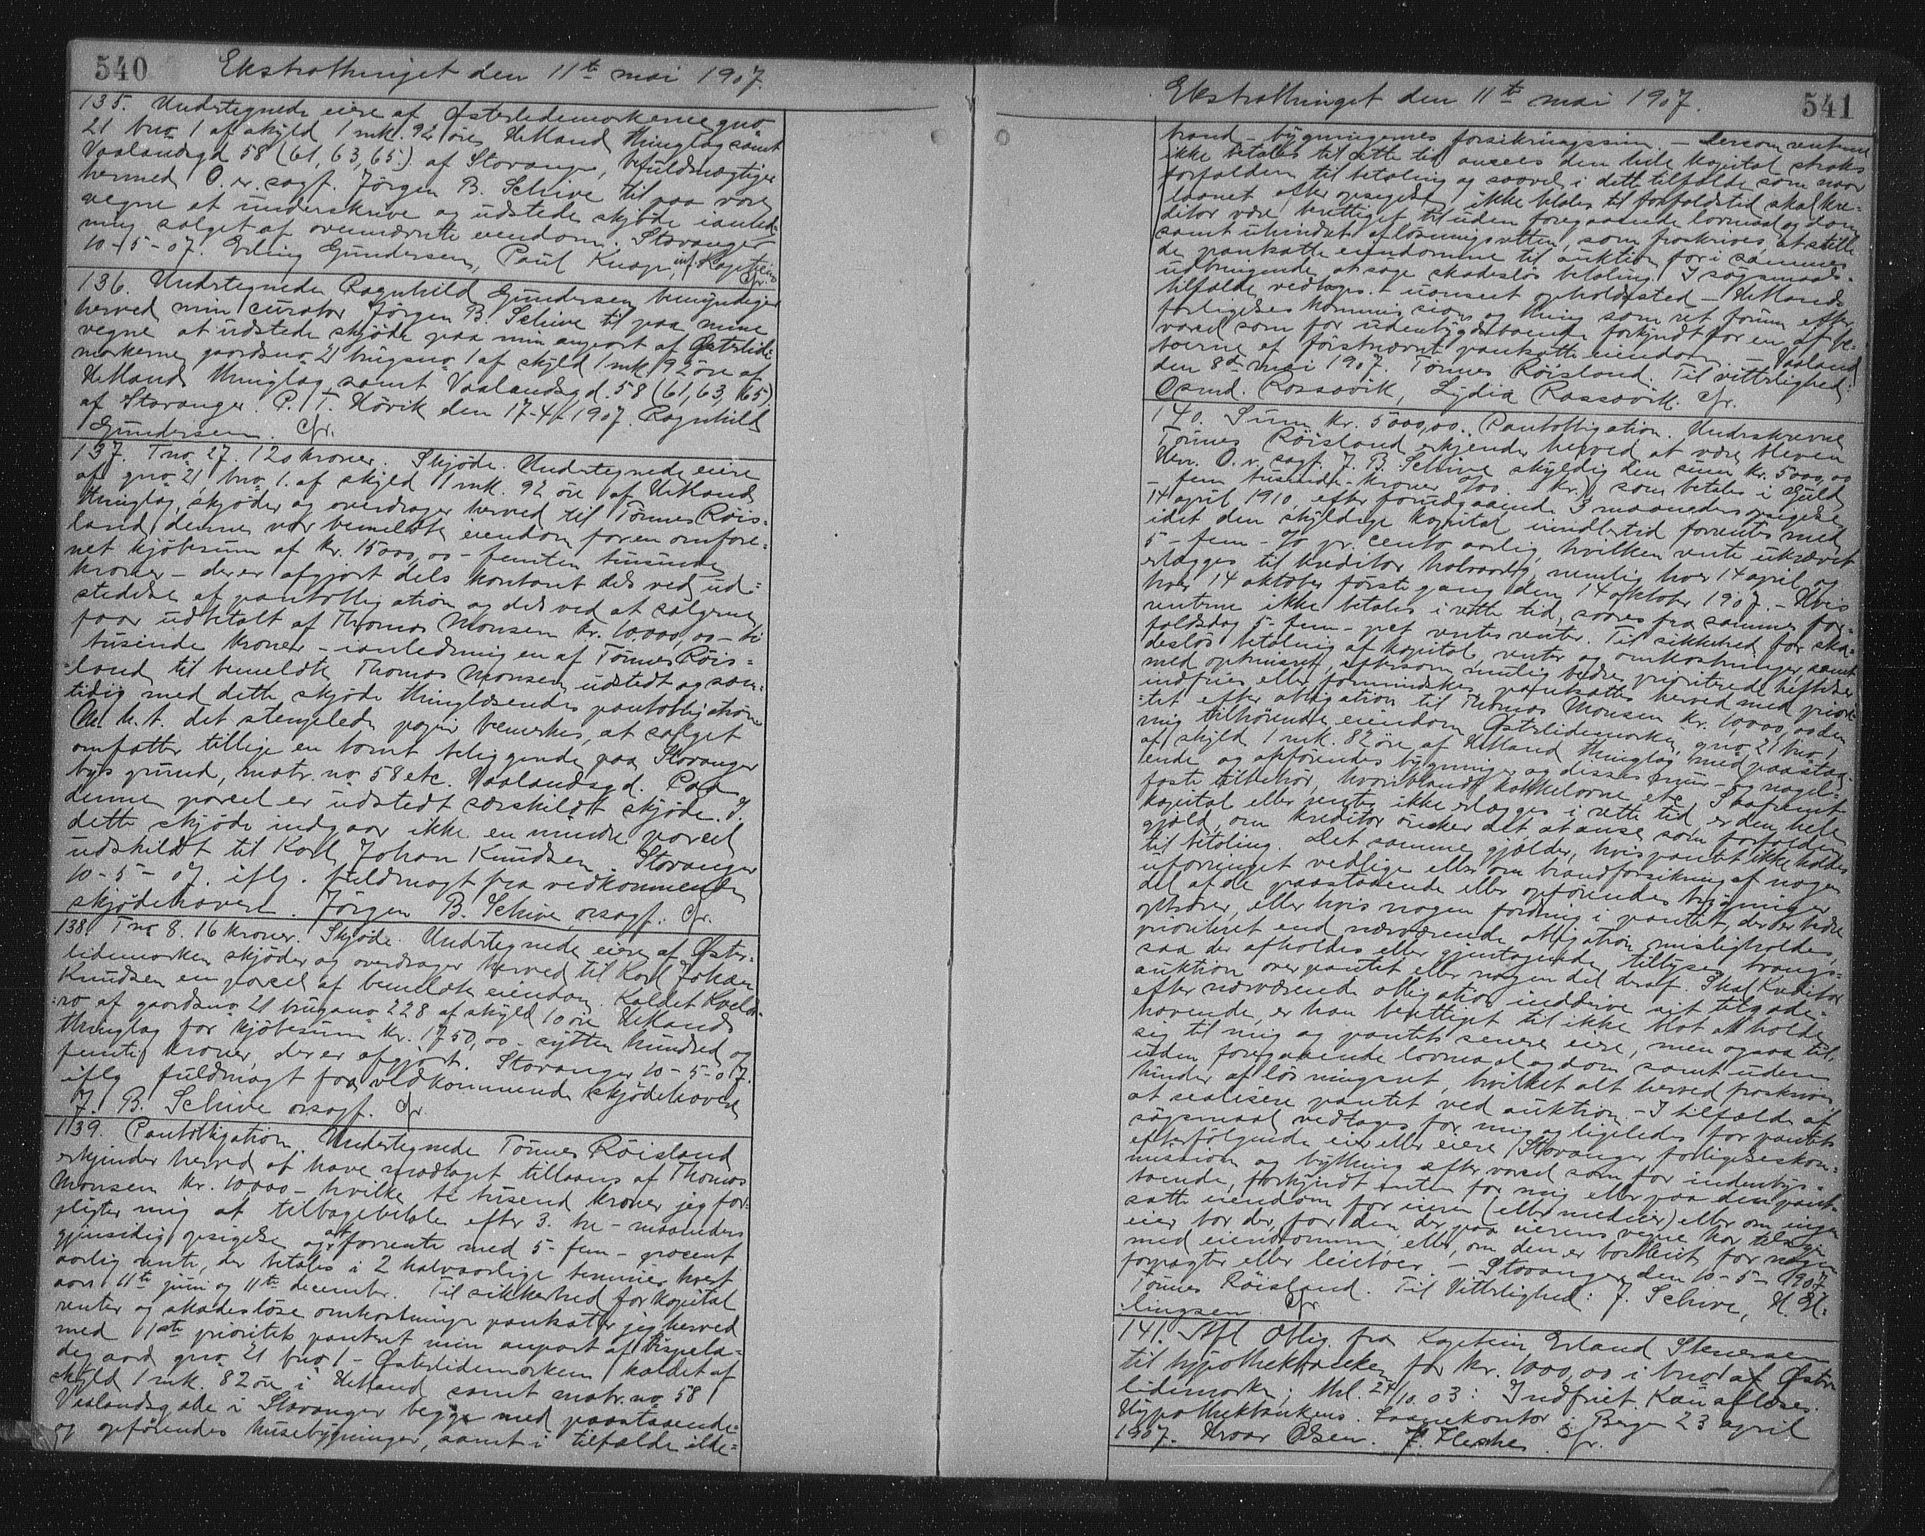 540
Ekstrathinget den 11te mai 1907.
135. Undertegnede eiere af Østerlidemorkerne gno
21 bno. 1 af skyld 1 mk. 92 öre, Hetland thinglag samt
Vaalandsgd 58 (61, 63, 65.) af Stavanger, befuldmægtiger
hermed O. r. sagf. Jörgen B. Schive til paa vore
vegne at underskrive og udstede skjöde i anled-
ning salget af ovennævnte eiendom. Stavanger
10-5-07. Erling Gundersen, Paul Knap,
136. Undertegnede Ragnhild Gundersen bemyndiger
herved min curator Jörgen B. Schive til paa mine
vegne at udstede skjöde paa min anpart af Østerlide-
morkerne gaardsno. 21 brugsno 1 af skyld 1 mk. 92 öre af
Hetland thinglag, samt Vaalandsgd. 58 (61, 63, 65)
af Stavanger. P. T. Hövik den 17-4-1907. Ragnhild
Gundersen. Cfr.
137. Tno. 27. 120 kroner. Skjöde. Undertegnede eiere
af gno. 21 bno. 1. af skyld 1 mk. 92 öre af Hetland
thinglag, skjöder og overdrager herved til Tönnes Röis-
land denne vor bemeldte eiendom for en omfore-
net kjöbesum af kr. 15000,00 - femten tusinde
kroner - der er afgjort dels kontant dels ved ud-
stedelse af pantobligation og dels ved at sælgerne
faar udbetalt af Thomas Monsen kr. 10.000,00 - ti
tusende kroner - i anledningen af Tönnes Röis-
land til bemeldte Thomas Monsen udstedt og sam-
tidig med dette skjöde thinglæsendes pantobligation
An. h. t. det stemplede papir bemerkes, at salget
omfatter tillige en tomt beliggende paa Stavanger
bys grund, matr. no. 58 etc. Vaalandsgd. Paa
denne parcel er udstedt særskildt skjöde. I
dette skjöde indgaar ikke en mindre parcel
udskildt til Karl Johan Knudsen. Stavanger
10-5-07. iflg. fuldmagt fra vedkommende
skjödehavere. Jörgen B. Schive orsagf. Cfr.
138. Tno 8. 16 kroner. Skjöde. Undertegnede eiere af Øster-
lidemorken skjöder og overdrager herved til Karl Johan
Knudsen en parcel af bemeldte eiendom. Kaldet Kveld-
ro af gaardsno 21 brugsno 228 af skyld 10 öre Hetland
thinglag for kjöbesum kr. 1750,00 - sytten hundred og
femti kroner, der er afgjort. Stavanger 10-5-07.
iflg fuldmagt fra vedkommende skjödehavere
J. B. Schive orsagf. Cfr
139. Pantobligation. Undertegnede Tönnes Röisland
erkjender herved at have modtaget tillaans af Thomas
Monsen kr. 10000 - hvilke ti tusend kroner jeg for-
pligter mig at tilbagebetale efter 3. tre - maaneders
gjensidig opsigelse og at forrente med 5 - fem - procent
aarlig rente, der betales i 2 halvaarlige terminer hvert
aars 11te juni og 11te december. Til sikkerhed for kapital
renter og skadeslöse omkostninger pantsætter jeg herved
med 1ste prioritets panteret min anpart af Bispela-
degaard gno. 21 bno. 1 - Østerlidemorken kaldet af
skyld 1 mk. 82 öre i Hetland samt matr. no 58
Vaalandsgade i Stavanger begge med paastaaende
og opförendes husebygninger, samt i tilfælde ilde-
541
Ekstrathinget den 11te mai 1907.
brand - bygningernes forsikringssum. - Dersom renterne
ikke betales til rette tid, ansees den hele kapital straks
forfalden til betaling og saavel i dette tilfælde som naar
laanet efter opsigelse ikke betales til forfaldstid skal kre-
ditor være berettiget til uden foregaaende lovmaal og dom
samt uhindret af lösningsretten, som fraskrives, at stille
de pantsatte eiendomme til auktion for i sammes
udbringende at söge skadeslös betaling. I sögsmaals-
tilfælde vedtages - uanseet opholdssted - Hetlands
forligelseskommission og thing som ret forum efter
varsel som for udenbygdsboende forkyndt for en af be-
boerne af förstnævnte pantsatte eiendom. - Vaaland
den 8de mai 1907. Tönnes Röisland. Til vitterlighed:
Osmd. Rossavik, Lydia Rossavik. Cfr.
140. Sum kr. 5000,00. Pantobligation. Underskrevne
Tönnes Röisland erkjender herved at være bleven
Herr. O. r. sagf. J. B. Schive skyldig den sum kr. 5000,00
- fem tusinde - kroner 0/00 - kr.) som betales i Guld
14 april 1910, efter forudgaaende 3 maaneders opsigelse
idet den skyldige kapital imidlertid forrentes med
5 - fem - % pr. cento aarlig, hvilken rente ukrævet
erlægges til kreditor halvaarlig, nemlig hver 14 april og
hver 14 oktober förste gang den 14 oktober 1907. - Hvis
renterne ikke betales i rette tid, svares fra sammes for-
faldsdag 5 - fem - pct renters renter. Til sikkerhed for ska-
deslös betaling af kapital, renter og omkostninger, samt
med optrinsret, eftersom mulig bedre prioriterede heftelser
indfries eller formindskes, pantsættes herved med priori-
tet efter obligation til Thomas Monsen kr. 10,000,00 den
mig tilhörende eiendom Østerlidemorken, gno. 21 bno. 1
af skyld 1 mk. 82 öre, af Hetland thinglag med paastaa-
ende og opförendes bygninger og disses mur- og nagel-
faste tilbehör, hvoriblandt kakkelovne etc. Saafremt
kapital eller renter ikke erlægges i rette tid, er den hele
gjæld, om kreditor önsker det, at anse som forfalden
til betaling. Det samme gjælder, hvis pantet ikke holdes
uforringet vedlige eller om brandforsikring af nogen
del af de paastaaende eller opförendes bygninger
ophörer, eller hvis nogen fordring i pantet, der er bedre
prioriteret end nærværende obligation misligholdes,
saa der afholdes eller gjentagende tillyses tvangs-
auktion over pantet eller nogen del deraf. Skal Kreditor
efter nærværende obligation inddrive sit tilgode-
havende, er han berettiget til ikke blot at holde
sig til mig og pantets senere eiere, men ogsaa til
uden foregaaende lovmaal og dom samt uden
hinder af lösningsret, hvilket alt herved fraskrives
at realisere pantet ved auktion. - I tilfælde af
sögsmaal vedtages for mig og ligeledes for pantets
efterfölgende eier eller eiere Stavanger forligelseskom-
mission og bything efter varsel som for indenbys-
boende, forkyndt enten for mig eller paa den pant-
satte eiendom for eieren (eller medeier) eller om ingen
eier bor der, for den, der paa eierens vegne har tilsyn
med eiendommen, eller, om den er bortleiet, for nogen
forpagter eller leieboer. - Stavanger den 10-5-1907.
Tönnes Röisland. Til Vitterlighed: J. Schive, H. El-
lingsen. Cfr
141. Afl. Oblig. fra Kaptein Erland Stenersen
til hypothekbanken for kr. 1000,00 i bno 1 af Øster-
lidemorken; thl. 24/10. 03: Indfriet. Kan aflæses.
Hypothekbankens. Laanekontor i Bergen 23 april
1907. Hroar Olsen. F. Cfr.